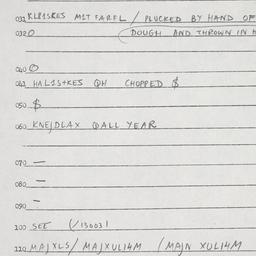 031 KLP1SKES MIT FARFL / PLUCKED BY HAND OF
032 0 (DOUGH AND THROWN IN H
040 0
041 HAL1S+KES QH CHOPPED $
050 $
060 KNEJDLAX @ALL YEAR
070 —
080 —
090 —
100 SEE (√13003)
110 MAJXLS / MAJXULI4M (MAJN XULI4M